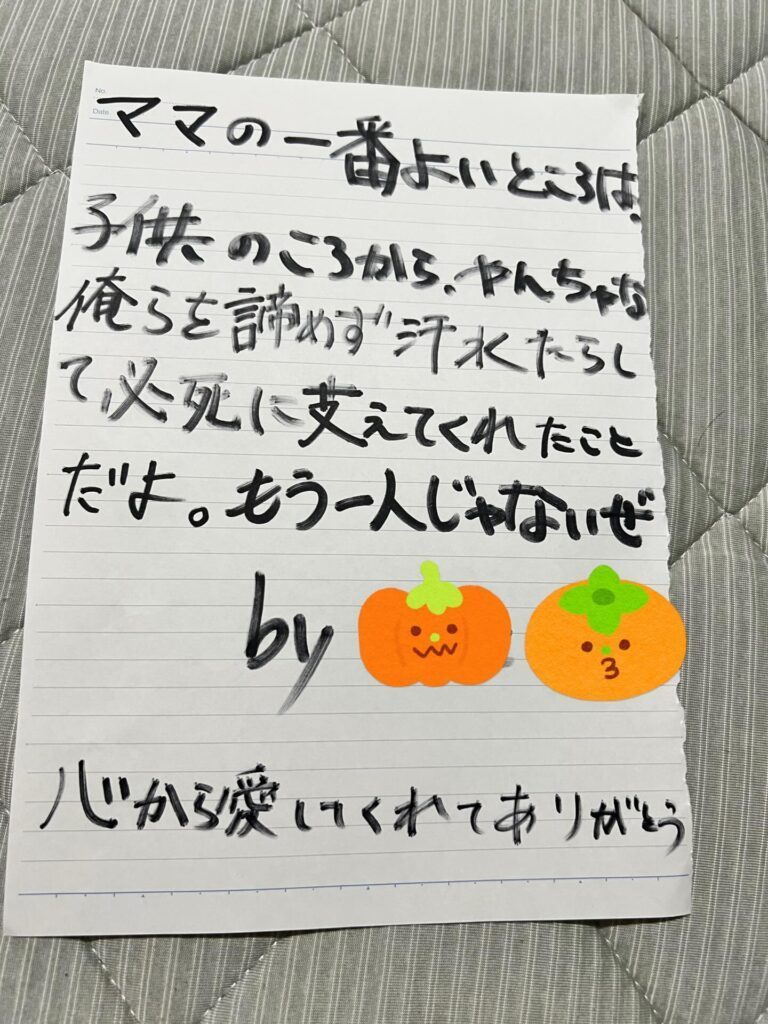 No.
Date
ママの一番よいところは、
子供のころから、やんちゃな
俺らを諦めず汗水たらし
て、必死に支えてくれたこと
だよ。もう一人じゃないぜ
by
心から愛してくれてありがとう